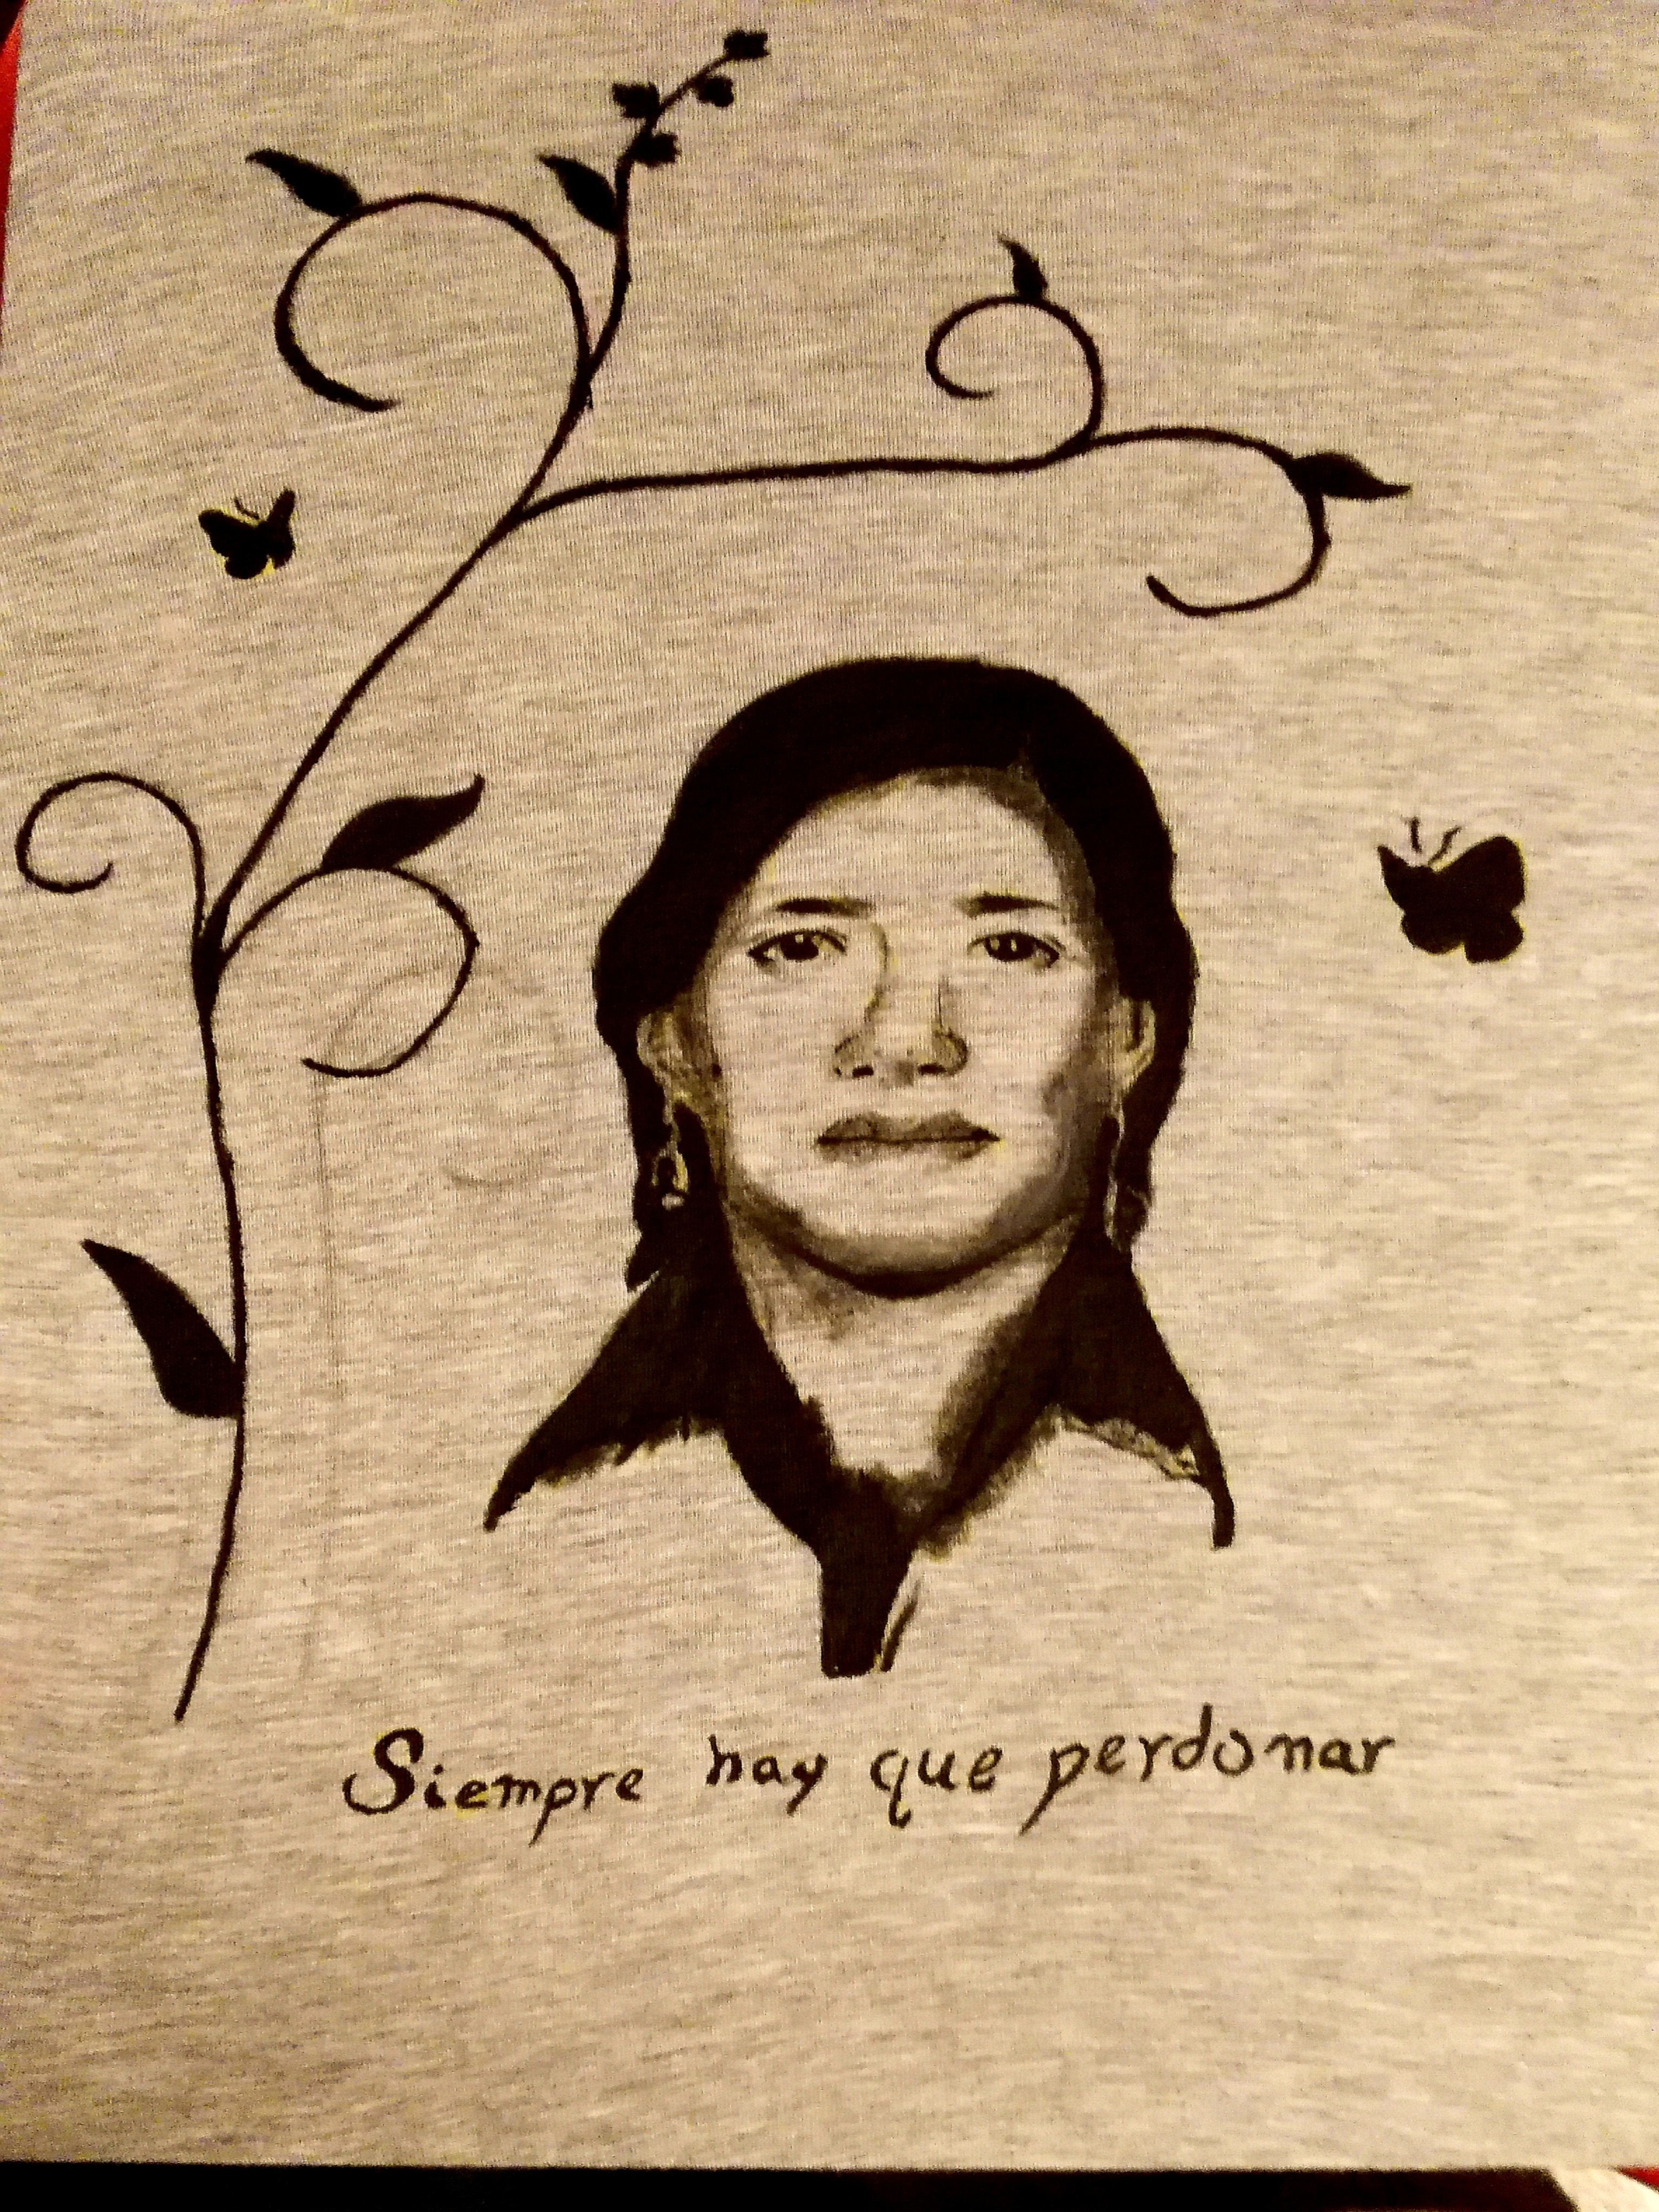 Siempre hay que perdonar